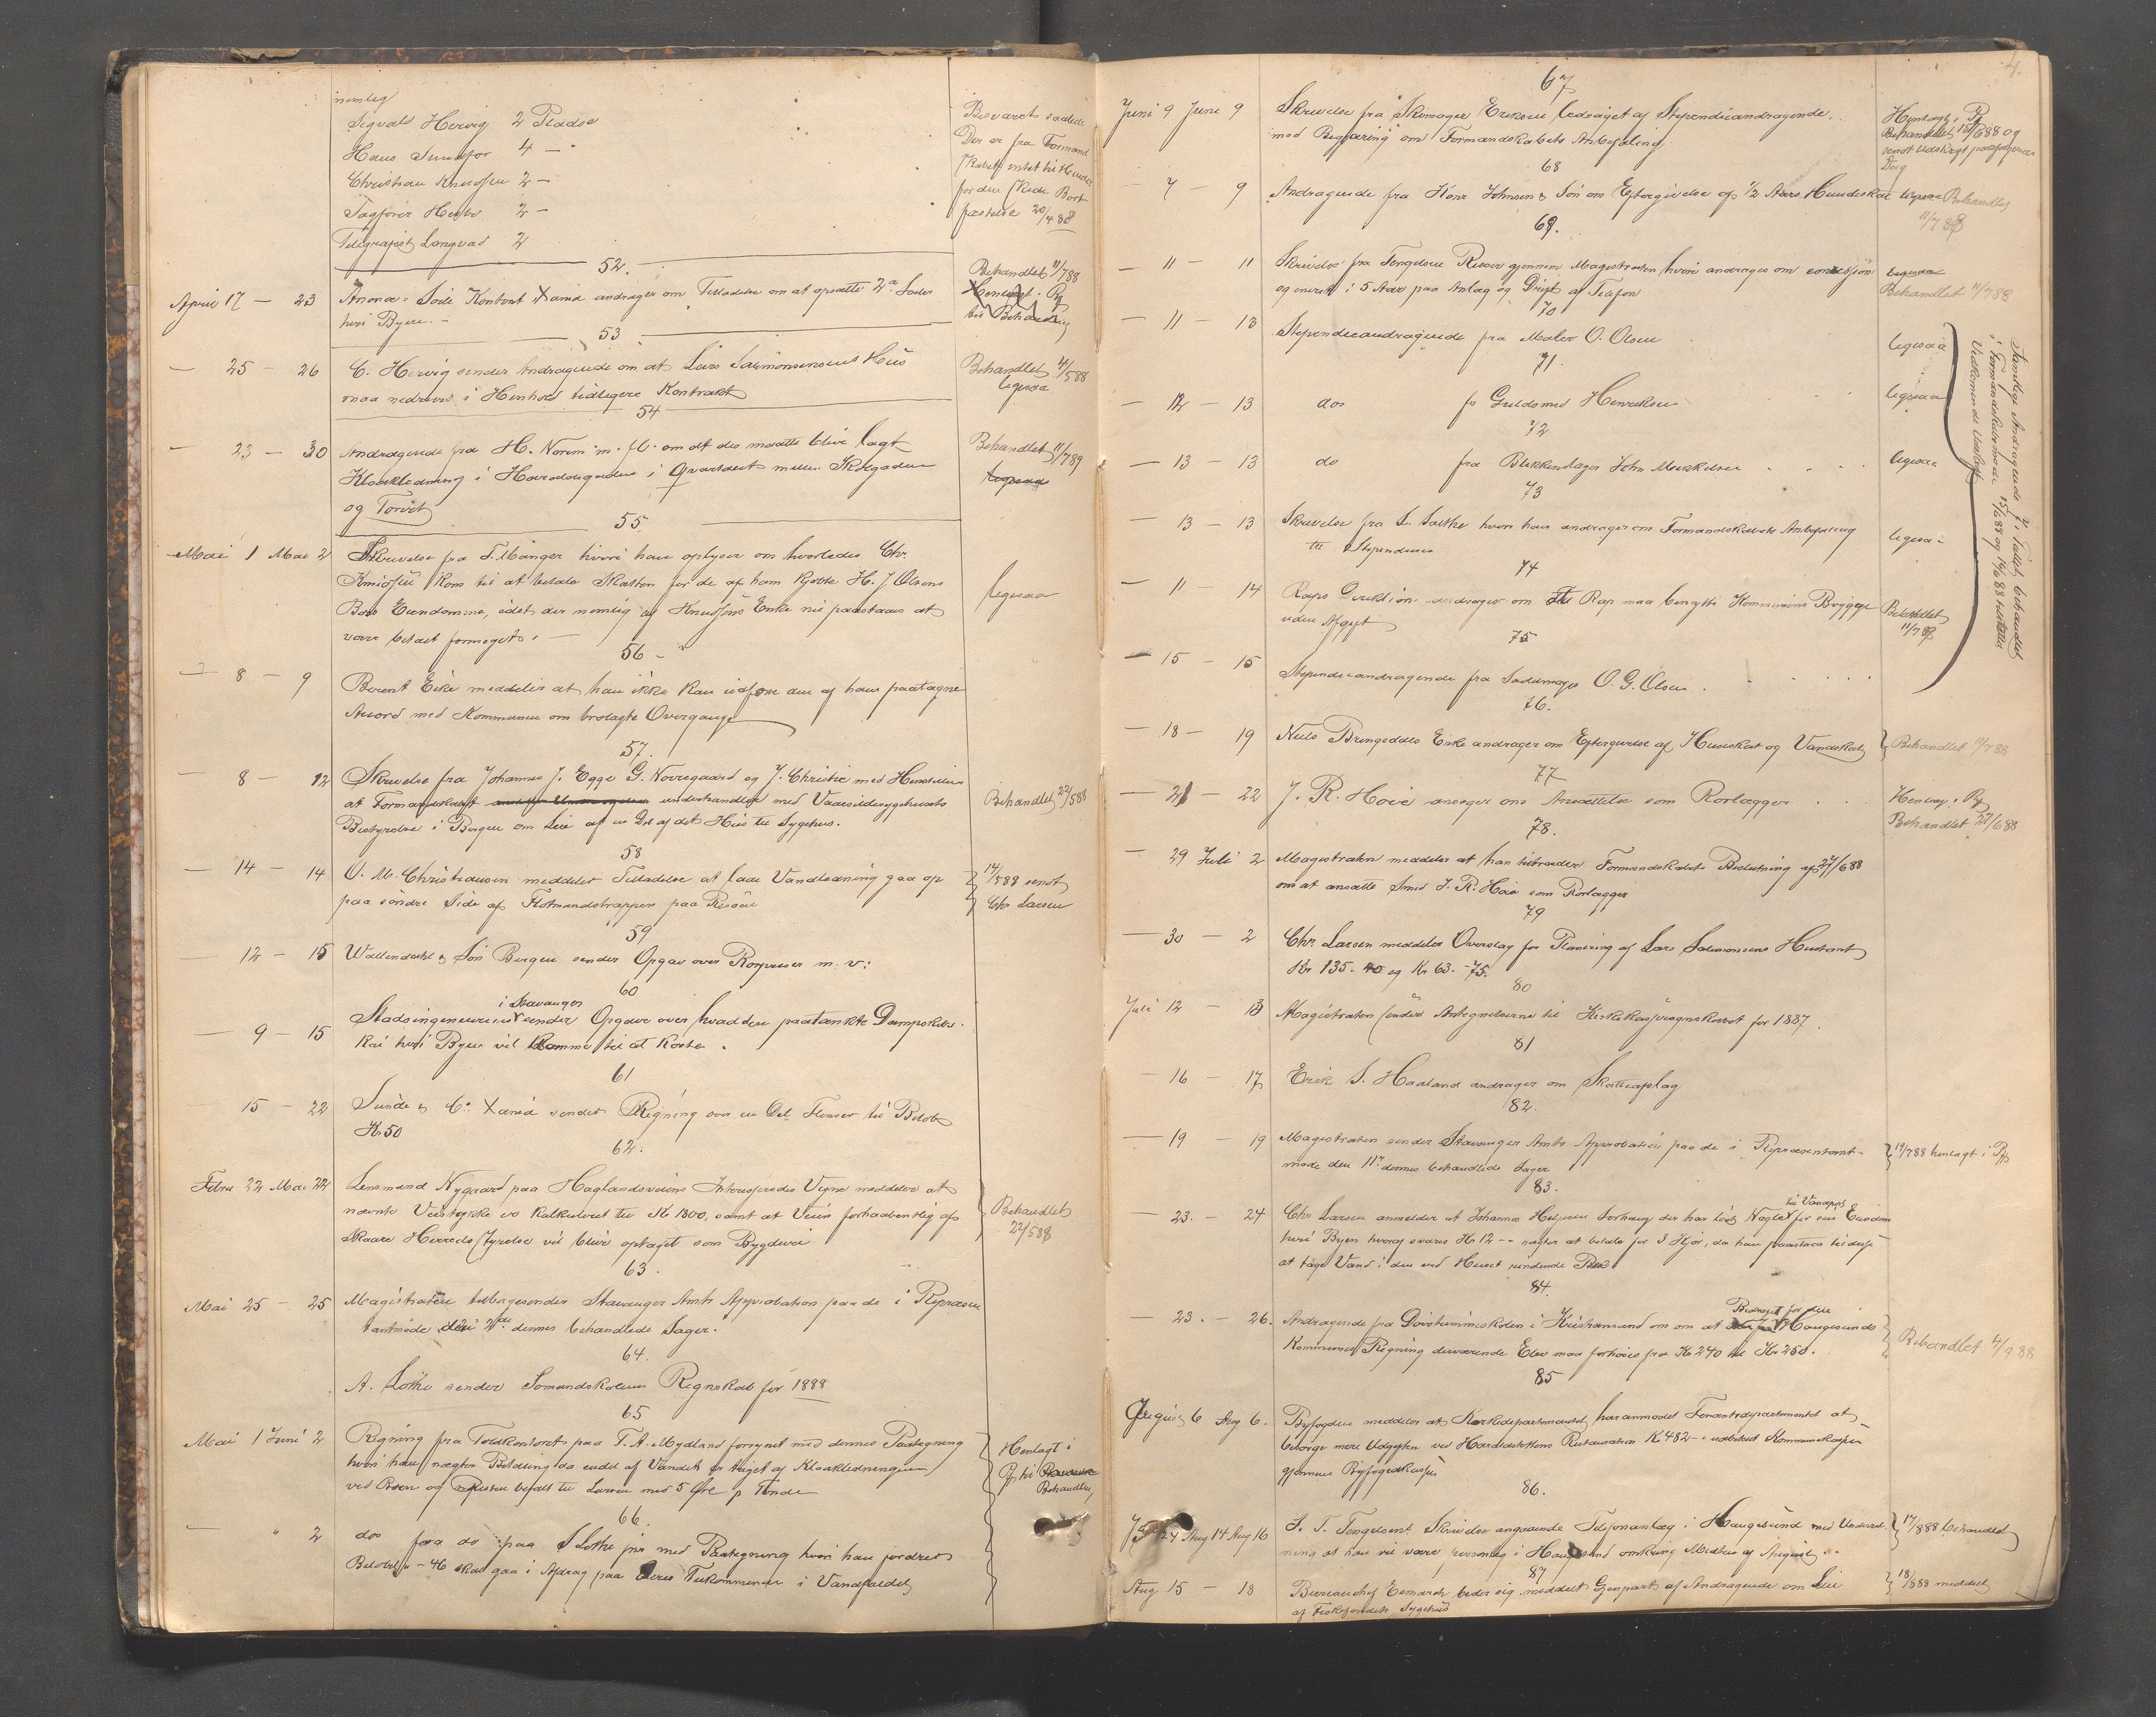 nemlig
Sigvald Hervig 2 Pladse
Hans 4 —
Christian Knudsen 2 —
2 —
Telegrafist Langvad 2
Besvaret saalede
Der er fra Formand
skabets intet til Hinder
for den skede Bort
fæstelse 20/4 88
52.
April 17 — 23 Anonce Kontoret Xania andrager om Tilladelse om at opsætte 2de
heri Byen. —
Behandlet 11/7 88
Henlagt i Pf
til Behandling
53
— 25 — 26 C. Hervig sender Andragende om at Lars Salmonsensens Hus
maa nedrives i Henhold tidligere Kontrakt
Behandlet 14/5 88
ligesaa
54
— 23 — 30 Andragende fra H. Norem m. fl. om at der maatte blive lagt
Kloakledning i Haraldsgaden i Qvartalet mellem Skolegaden
og Torvet
Behandlet 11/7 89
ligesaa
55
Mai 1 Mai 2 Skrivelse fra T. Mânger hvori han oplyser om hvorledes Chr.
Knudsen kom til at betale Skatten for de af ham kjøbte H. J. Olsens
Bos Eiendomme, idet der nemlig af Knudsens Enke nu paastaaes at
være betalt formeget. —
ligesaa
56 —
— 8 — 9 Berent Eike meddeler at han ikke kan udføre den af ham paatagne
Accord med Kommunen om brolagte Overgange
57.
— 8 — 12 Skrivelse fra Johannes J. Egge G. Norregaard og J. Christie med Henstillen
at Formandskabet underhandler med Vaarsildesygehusets
Bestyrelse i Bergen om Leie af en Del af det Hus til Sygehus.
Behandlet 22/5 88
58
— 14 — 14 O. M. Christiansen meddeles Tilladelse at lade Vandledning gaa op
paa søndre Side af Flotmandstrappen paa Risøen
14/5 88 sendt
Chr Larsen
59
— 12 — 15 Wallendahl & Søn Bergen sender Opgav over Rørpriser m. v:
60
i Stavanger
— 9 — 15 Stadsingeneuren sender Opgave over hvad den paatænkte Dampskibs-
kai heri Byen vil komme til at koste.
61
15 — 22 Sunde & Co Xania sender Regning over en Del Flenser til Beløb
Kr 50
62.
Febru 22 Mai 22 Lensmand Nygaard paa Haglandsveiens Interesseredes Vegne meddeler at
nævnte Veistykke er kalkuleret til Kr 1800, samt at Veien forhaabentlig af
Skaare Herredsstyrelse vil blive optaget som Bygdevei
Behandlet
22/5 88
63.
Mai 25 — 25 Magistraten tilbagesender Stavanger Amts Approbation paa de i Repræsen
tantmøde den 2de dennes behandlede Sager.
64.
A. Lothe sender Sømandskolens Regnskab for 1888
65
Mai 1 Juni 2 Regning fra Toldkontoret paa T. A. Mydland forsynet med dennes Paategning
hvori han nægter Betaling da endel af Vandet er taget af Kloakledningen
ved Broen og Resten betalt til Larsen med 5 Øre p Tønde
Henlagt i
Pf til
Behandling
66.
— " 2 dos fra do paa S Lothe jnr med Paategning hvori han fordrer
Beløbet — 46 skal gaa i Afdrag paa Tilkommende i Vandfaldet
4.
67
Juni 9 Juni 9 Skrivelse fra Skomager Eriksen ledsaget af Stipendieandragende
med Begjæring om Formandskabets Anbefaling
Henlagt i Pf
Behandlet 15/6 88 og
sendt Udskrift paafølgende
Dag
68
— 7 — 9 Andragende fra Konr Johnsen & Søn om Eftergivelse af 1/2 Aars Hundeskat
ligesaa Behandlet
11/7 88
69.
— 11 — 11 Skrivelse fra Tengelsen Risør gjennem Magistraten hvori andrages om concession
og eneret i 5 Aar paa Anlæg og Drift af Telefon
ligesaa
Behandlet 11/7 88
70
— 11 — 13 Stipendieandragende fra Maler O. Olsen
ligesaa
71.
— 12 — 13 dos fr Guldsmed Henriksen
ligesaa
72
— 13 — 13 do fra Blikkenslager John Mikkelsen
ligesaa
73
— 13 — 13 Skrivelse fra S. hvori han andrager om Formandskabets Anbefaling
til Stipendium
ligesaa
Samtlige Andragende f. Tallet behandlet
i Formandskabsmøde 15/6 88 og 14/6 88 tilstillet
Vedkommende Udskrift
74
— 11 — 14 Raps Direktion andrager om at Rap maa benytte Kommunens Brygge
uden Afgift
Behandlet
11/7 88
75
— 15 — 15 Stipendieandragende fra Sadelmager O. G. Olsen
76.
— 18 — 19 Niels Bringedals Enke andrager om Eftergivelse af Husskat og Vandskat
Behandlet 11/7 88
77
— 21 — 22 J. R. Høie ansøger om Ansættelse som Rørlægger
Henlag i Pf
Behandlet 27/6 88
78.
— 29 Juli 2 Magistraten meddeler at han tiltræder Formandskabets Beslutning af 27/6 88
om at ansætte Smed J. R. Høie som Rørlægger
79
— 30 — 2 Chr Larsen meddeler Overslag for Planering af Lars Salmonsens Hustomt
Kr 135.40 og Kr 63.-75.
80
Juli 12 — 13 Magistraten sender Antegnelserne til Kirkekasseregnskabet for 1887.
81
— 16 — 17 Erik S. Haaland andrager om Skatteafslag
82.
— 19 — 19 Magistraten sender Stavanger Amts Approbation paa de i Repræsentant-
møde den 11te dennes behandlede Sager
19/7 88 henlagt i Pf
83.
til Vanapp
— 23. — 24 Chr Larsen anmelder at Johannes Helgesen Sørhaug der har løst Nøgle for sin Eiendom
heri Byen hvoraf svares Kr 12 — nægter at betale for 3 Kjør, da han paastaar til disse
at tage Vand i den ved Huset rindende
84.
Bidraget for den
— 23. — 26. Andragende fra Døvstummeskolen i Kristiansund om om at Haugesunds
Kommunes Regning derværende Elev maa forhøies fra Kr 240 til Kr 260.
Behandlet 4/9 88
85
August 6 Aug 6. Byfogden meddeler at Kirkedepartementet har anmodet Finantsdepartementet at
besørge mere Udgiften ved Haraldsstøttens Restauration Kr 482 — udbetalt Kommunekassen
gjennem Byfogedkassen
86.
24 Aug 14 Aug 16 J. T. Tengelsens Skrivelse angaaende Telefonanlæg i Haugesund med Underret-
ning at han vil være personlig i Haugesund omkring Midten af August.
17/8 88 behandlet
87
Aug 15 — 18 Bureauchef Esmarch beder sig meddelt Gjenpart af Andragende om Leie
af Fiskefondets Sygehus
18/8 88 meddelt